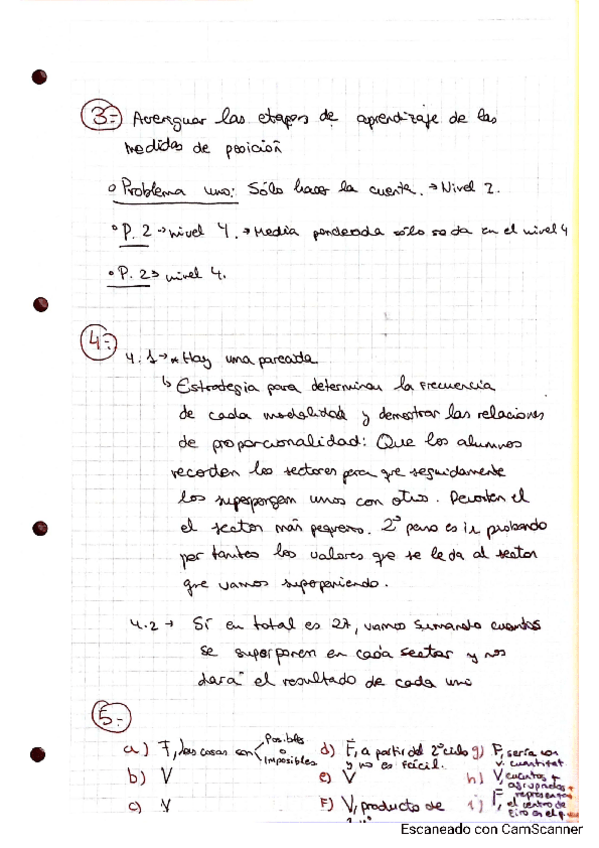 3= Averiguar las etapas de aprendizaje de las
medidas de posición
Problema uno: Sólo hacer la cuenta. → Nivel 2.
P. 2 → nivel 4. → Media ponderada sólo se da en el nivel 4
P. 2 → nivel 4.
4=
4.1 → * Hay una pareada
↳ Estrategia para determinar la frecuencia
de cada modalidad y demostrar las relaciones
de proporcionalidad: Que los alumnos
recorten los sectores para que seguidamente
los superpongan unos con otros. Recorten el
el sector más pequeño. 2º paso es ir probando
por tanteo los valores que se le da al sector
que vamos superponiendo.
4.2 → Si en total es 27, vamos sumando cuantos
se superponen en cada sector y nos
dará el resultado de cada uno
5=
a) F, las cosas son posibles o imposibles
b) V
c) V
d) F, a partir del 2º ciclo
y no es fácil.
e) V
F) V, producto de
g) F, sería con
v. cuantitat
h) V,
agrupados
i) F, represen
el centro de
giro en el
Escaneado con CamScanner